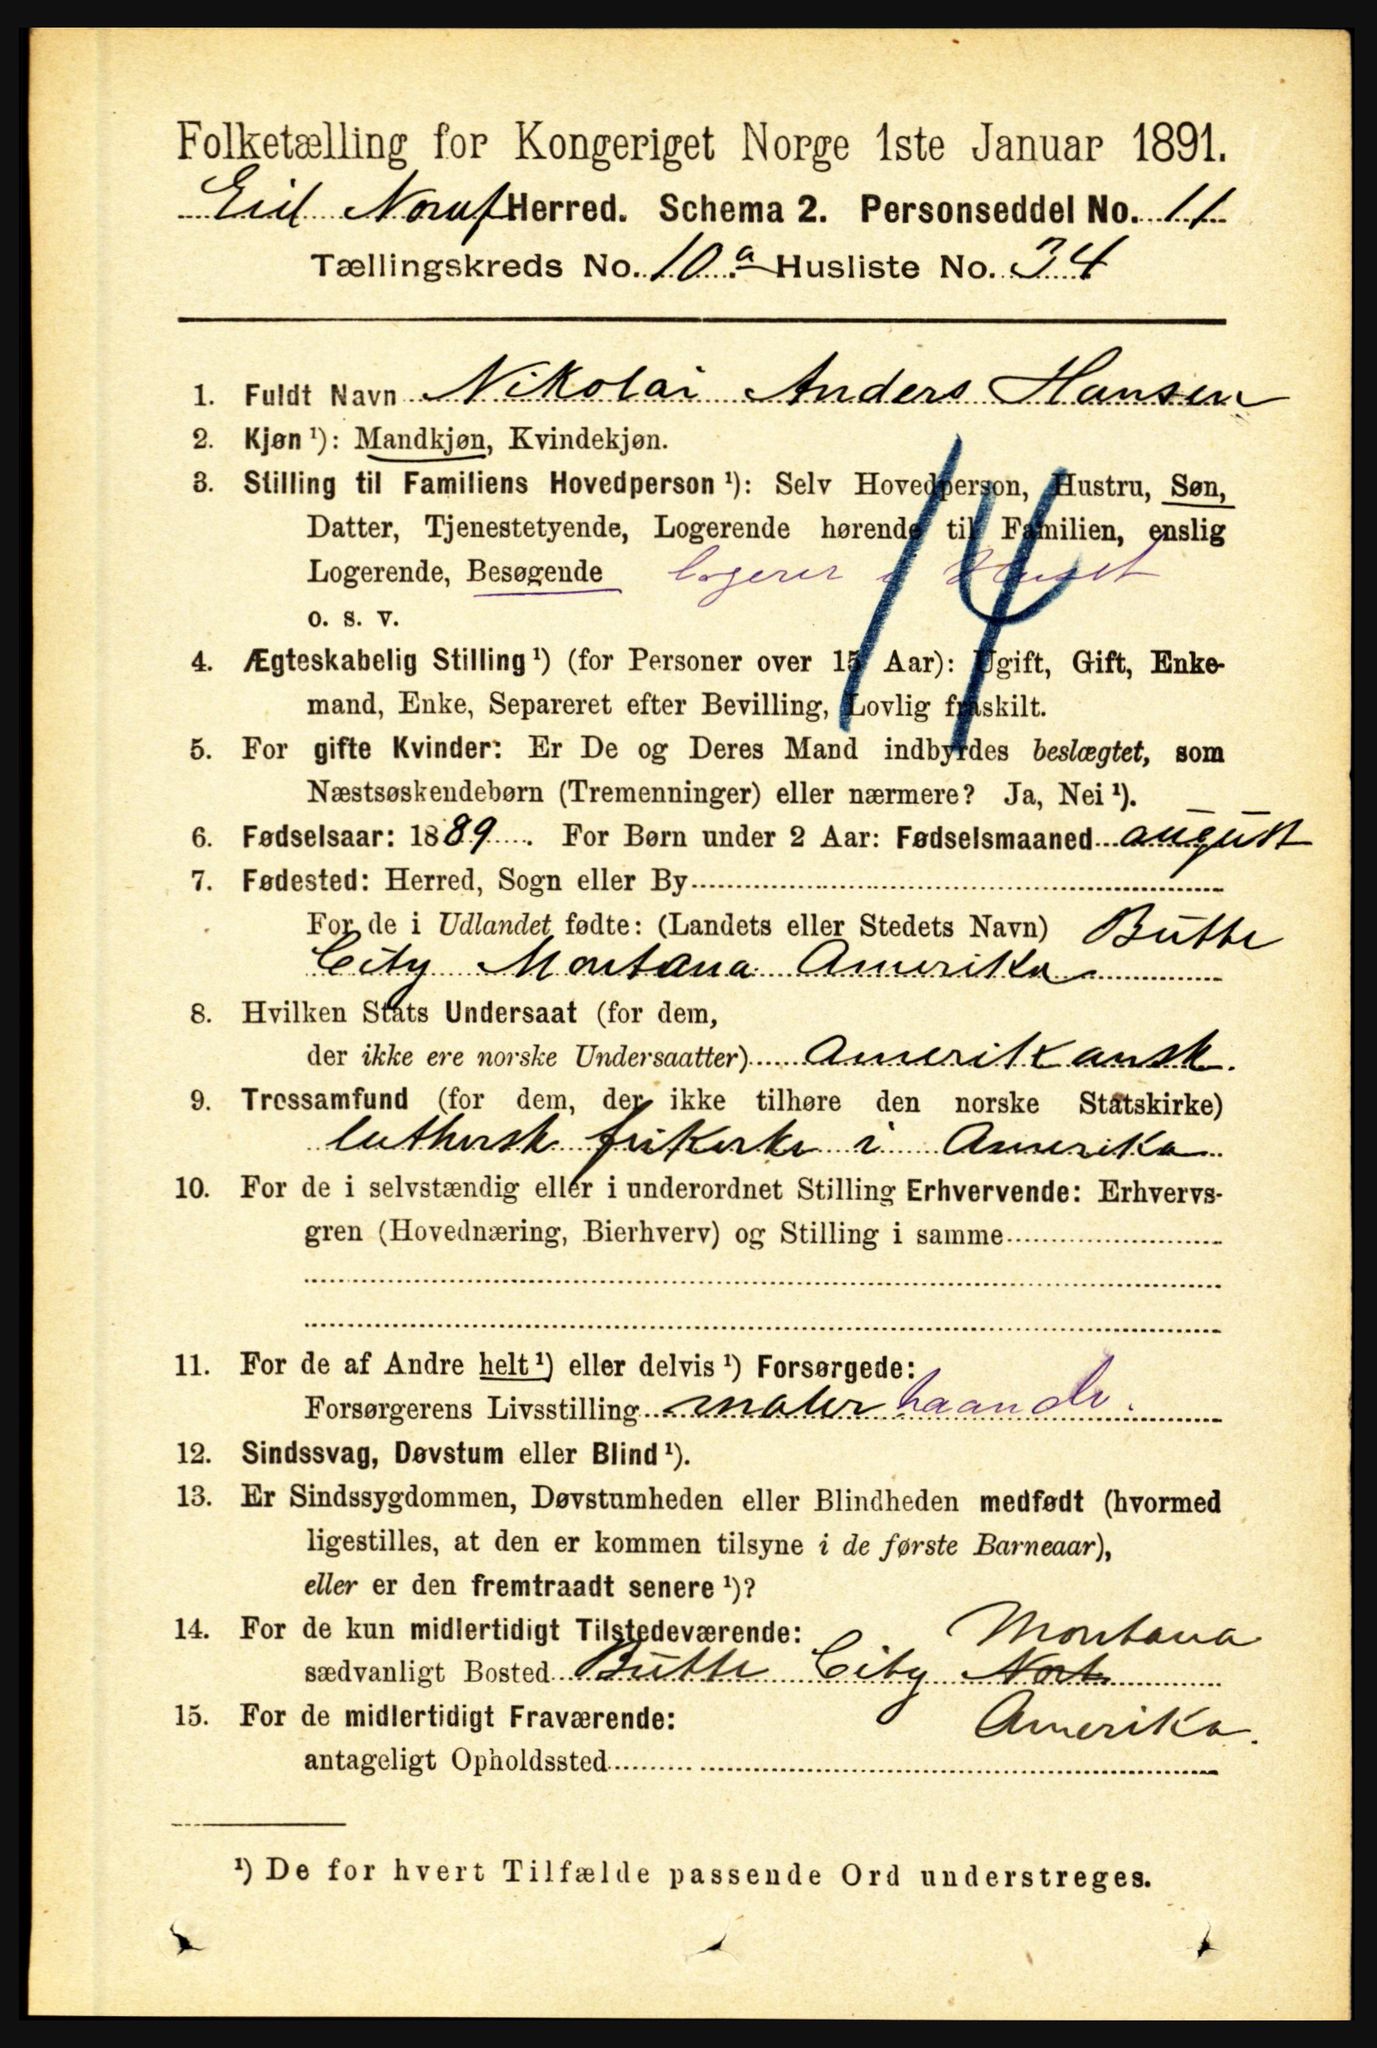 Folketælling for Kongeriget Norge 1ste Januar 1891.
Eid Nordf Herred. Schema 2. Personseddel No. 11
Tællingskreds No. 10 a Husliste No. 34
1. Fuldt Navn Nikolai Anders Hansen
2. Kjøn ¹): Mandkjøn, Kvindekjøn.
3. Stilling til Familiens Hovedperson ¹): Selv Hovedperson, Hustru, Søn,
Datter, Tjenestetyende, Logerende hørende til Familien, enslig
Logerende, Besøgende logerer i Huset
o. s. v.
14
4. Ægteskabelig Stilling ¹) (for Personer over 15 Aar): Ugift, Gift, Enke-
mand, Enke, Separeret efter Bevilling, Lovlig fraskilt.
5. For gifte Kvinder: Er De og Deres Mand indbyrdes beslægtet, som
Næstsøskendebørn (Tremenninger) eller nærmere? Ja, Nei ¹).
6. Fødselsaar: 1889. For Børn under 2 Aar: Fødselsmaaned august
7. Fødested: Herred, Sogn eller By
For de i Udlandet fødte: (Landets eller Stedets Navn) Butte
City Montana Amerika
8. Hvilken Stats Undersaat (for dem,
der ikke ere norske Undersaatter) Amerikansk.
9. Trossamfund (for dem, der ikke tilhøre den norske Statskirke)
luthersk frikirke i Amerika
10. For de i selvstændig eller i underordnet Stilling Erhvervende: Erhvervs-
gren (Hovednæring, Bierhverv) og Stilling i samme
11. For de af Andre helt ¹) eller delvis ¹) Forsørgede:
Forsørgerens Livsstilling maler haandv.
12. Sindssvag, Døvstum eller Blind ¹).
13. Er Sindssygdommen, Døvstumheden eller Blindheden medfødt (hvormed
ligestilles, at den er kommen tilsyne i de første Barneaar),
eller er den fremtraadt senere ¹)?
14. For de kun midlertidigt Tilstedeværende: Montana
sædvanligt Bosted Butte City Nort
15. For de midlertidigt Fraværende: Amerika.
antageligt Opholdssted
¹) De for hvert Tilfælde passende Ord understreges.